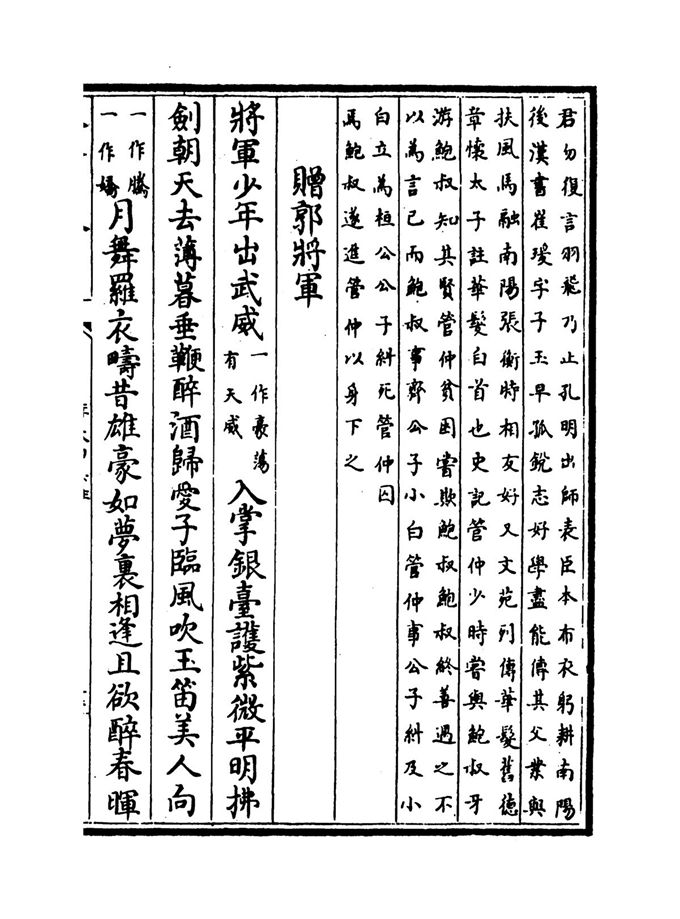 君勿復言羽飛乃止孔明出師表臣本布衣躬耕南陽
後漢書崔瑗字子玉早孤銳志好學盡能傳其父業與
扶風馬融南陽張衡特相友好又文苑列傳華髮舊德
章懷太子註華髮白首也史記管仲少時嘗與鮑叔牙
游鮑叔知其賢管仲貧困嘗欺鮑叔鮑叔終善遇之不
以為言已而鮑叔事齊公子小白管仲事公子糾及小
白立為桓公公子糾死管仲囚
焉鮑叔遂進管仲以身下之
贈郭將軍
將軍少年出武威一作豪蕩有天威入掌銀臺護紫微平明拂
劍朝天去薄暮垂鞭醉酒歸愛子臨風吹玉笛美人向
月一作騰一作嫣舞羅衣疇昔雄豪如夢裏相逢且欲醉春暉